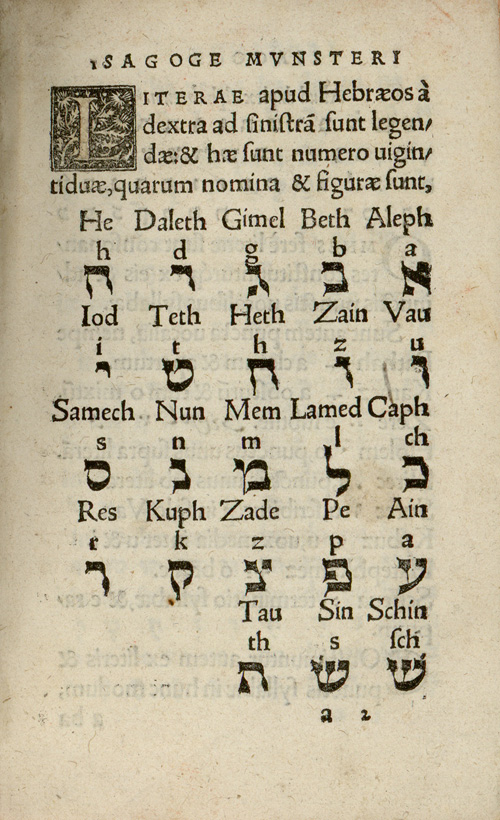 ISAGOGE MVNSTERI
LITERAE apud Hebræos à
dextra ad sinistrã sunt legen/
dæ:& hæ sunt numero uigin/
tiduæ,quarum nomina & figuræ sunt,
He Daleth Gimel Beth Aleph
h d g b a
א ב ג ד ה
Iod Teth Heth Zain Vau
i t h z u
ו ז ח ט י
Samech Nun Mem Lamed Caph
s n m l ch
כ ל מ נ ס
Res Kuph Zade Pe Ain
r k z p a
ע פ צ ק ר
Tau Sin Schin
th s sch
שׁ שׂ ת
a 2